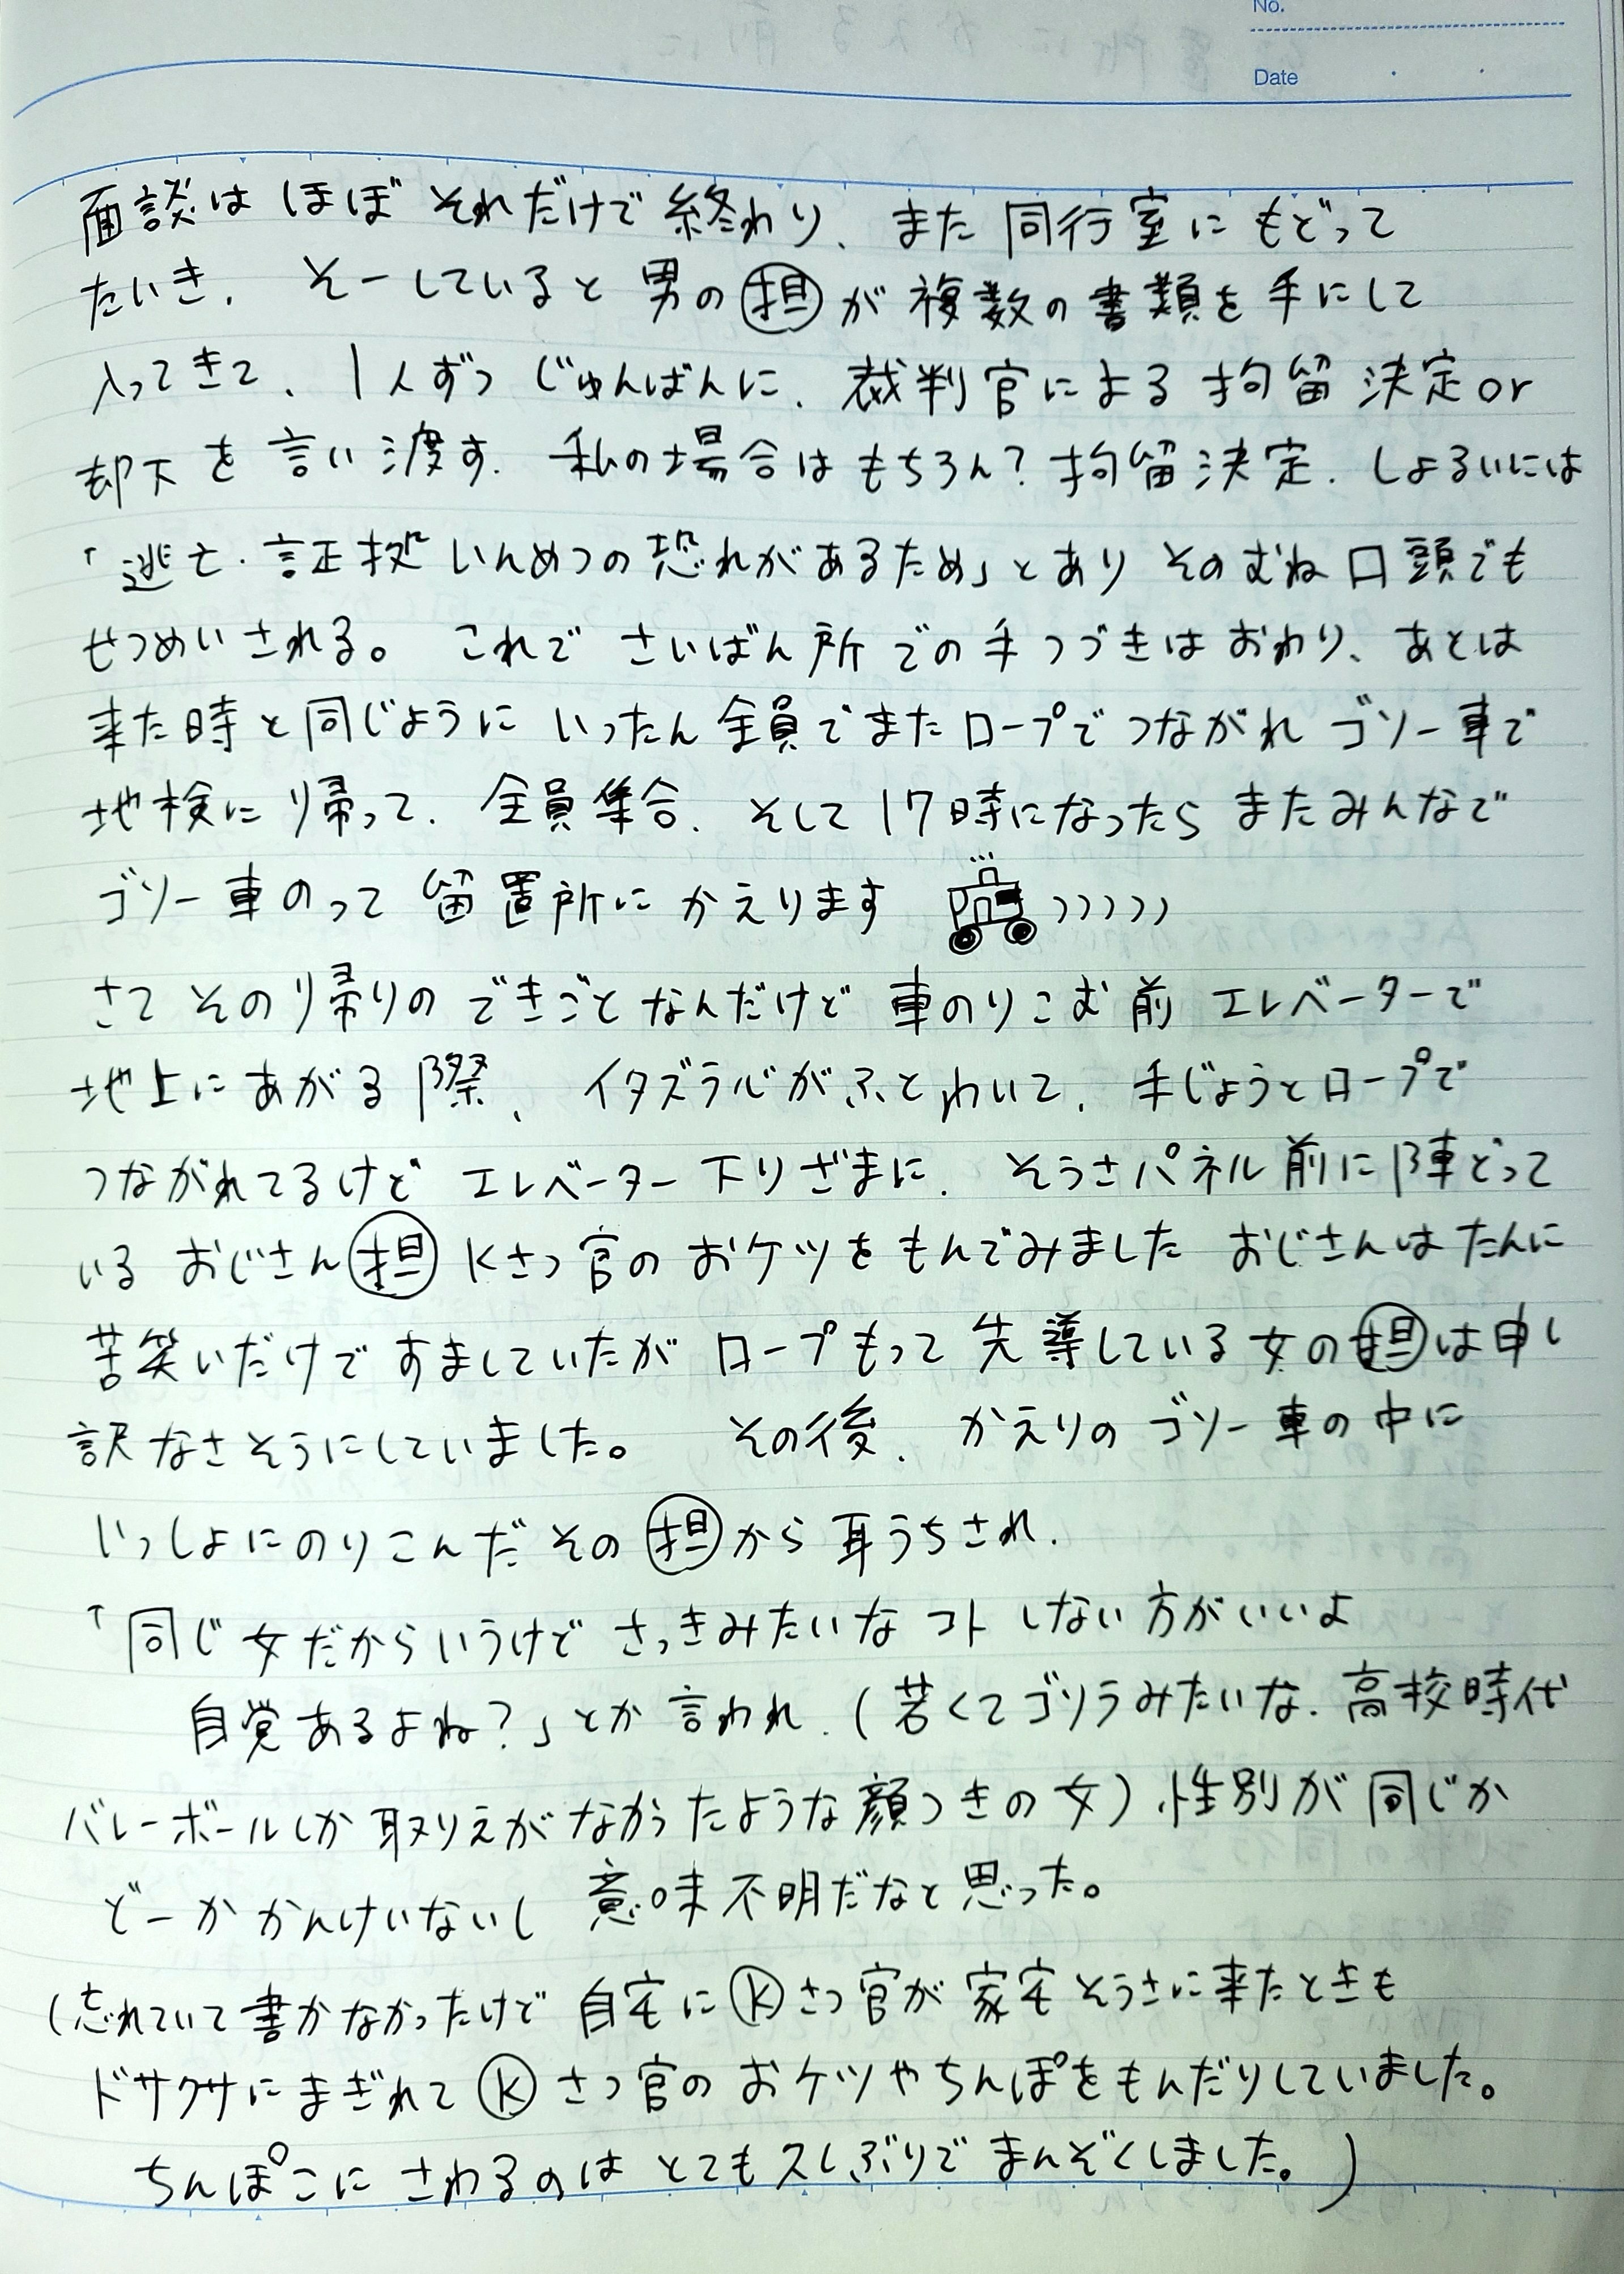 No.
Date
面談は ほぼ それだけで 終わり、また 同行室に もどって
たいき. そーしていると 男の 担 が 複数の 書類を 手にして
入ってきて、1人ずつ じゅんばんに、裁判官による 拘留 決定or
却下 を 言い渡す. 私の場合は もちろん? 拘留決定. しょるいには
「逃亡・証拠いんめつの恐れがあるため」とあり そのむね 口頭でも
せつめいされる。 これで さいばん所 での 手つづきは おわり、あとは
来た時と同じように いったん 全員でまたロープで つながれ ゴソー車で
地検に 帰って. 全員集合. そして 17時になったら またみんなで
ゴソー車のって 留置所に かえります
さて その帰りの できごと なんだけど 車のりこむ前 エレベーターで
地上に あがる 際、イタズラ心が ふと わいて、手じょうとロープで
つながれてるけど エレベーター 下りざまに、そうさパネル前に陣どって
いる おじさん 担 Kさつ官の おケツを もんでみました おじさんは たんに
苦笑いだけで すましていたが ロープもって 先導している 女の 担 は申し
訳なさそうにしていました。 その後、かえりの ゴソー車の中に
いっしょにのりこんだ その 担 から 耳うちされ.
「同じ女だからいうけど さっきみたいな コト しない方がいいよ
自覚あるよね?」とか 言われ.(若くてゴリラみたいな. 高校時代
バレーボールしか 取りえが なかったような 顔つきの女)、性別が 同じか
どーか かんけいないし 意味不明だなと思った。
(忘れていて書かなかったけど 自宅に Kさつ官が 家宅そうさに来たときも
ドサクサにまぎれて Kさつ官の おケツやちんぽをもんだりしていました。
ちんぽこに さわるのは とても久しぶりで まんぞくしました。)